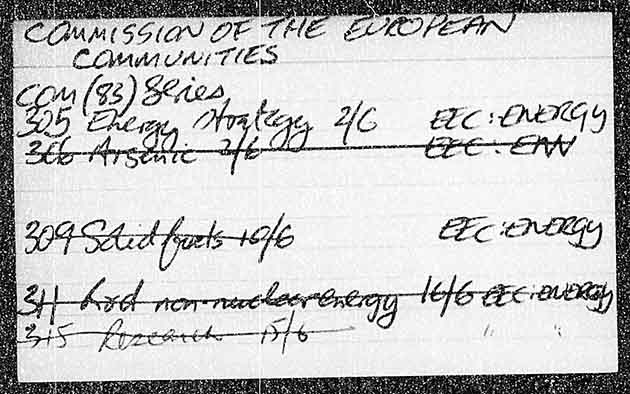 COMMISSION OF THE EUROPEAN
COMMUNITIES
COM (83) Series
305 Energy strategy 2/6 EEC: ENERGY
306 Arsenic 2/6 EEC: ENV
309 Solid fuels 10/6 EEC: ENERGY
311 non-nuclear energy 16/6 EEC: ENERGY
315 Research 15/6 " "